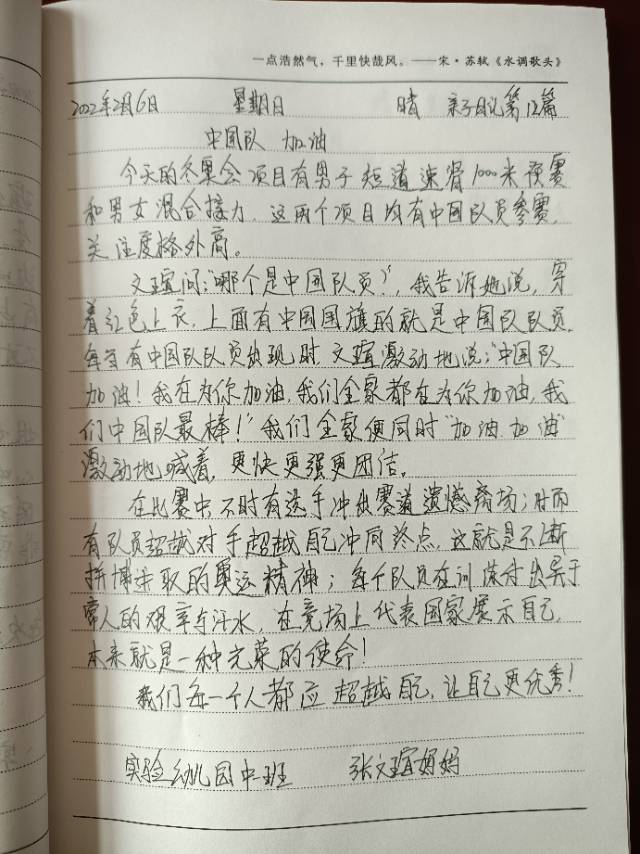 一点浩然气，千里快哉风。——宋·苏轼《水调歌头》
2022年2月6日 星期日 晴 亲子日记第12篇
中国队 加油
今天的冬奥会项目有男子短道速滑1000米预赛
和男女混合接力，这两个项目均有中国队员参赛，
关注度格外高。
文瑄问：“哪个是中国队员？”，我告诉她说，穿
着红色上衣，上面有中国国旗的就是中国队队员，
每当有中国队队员出现时，文瑄激动地说：“中国队
加油！我在为你加油，我们全家都在为你加油，我
们中国队最棒！”我们全家便同时“加油、加油”
激动地喊着，更快更强更团结。
在比赛中，不时有选手冲出赛道遗憾离场；时而
有队员超越对手超越自己冲向终点，这就是不断
拼搏进取的奥运精神；每个队员在训练付出异于
常人的艰辛与汗水，在竞场上代表国家展示自己，
本来就是一种光荣的使命！
我们每一个人都应超越自己，让自己更优秀！
实验幼儿园中二班 张文瑄妈妈